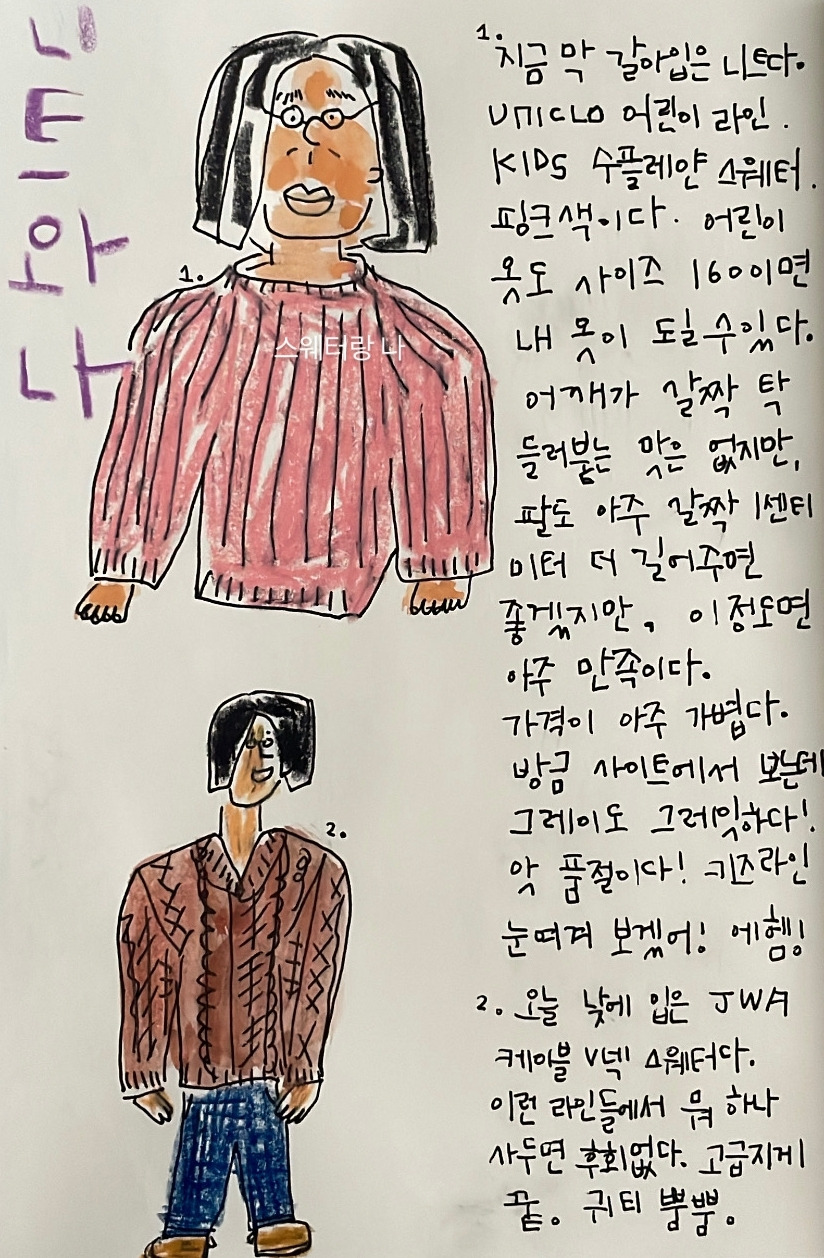 니트와 나
스웨터랑 나
1.
1. 지금 막 갈아입은 니트다.
UNICLO 어린이 라인.
KIDS 수플레얀 스웨터.
핑크색이다. 어린이
옷도 사이즈 160이면
내 옷이 도일수있다.
어깨가 살짝 탁
들러붙는 맛은 없지만,
팔도 아주 살짝 1센티
미터 더 길어주면
좋겠지만, 이정도면
아주 만족이다.
가격이 아주 가볍다.
방금 사이트에서 보는데
그레이도 그레잇하다!
앗 품절이다! 키즈라인
눈여겨 보겠어! 에헴!
2.
2. 오늘 낮에 입은 JWA
케이블 V넥 스웨터다.
이런 라인들에서 뭐 하나
사두면 후회없다. 고급지게
끝. 귀티 뿜뿜.